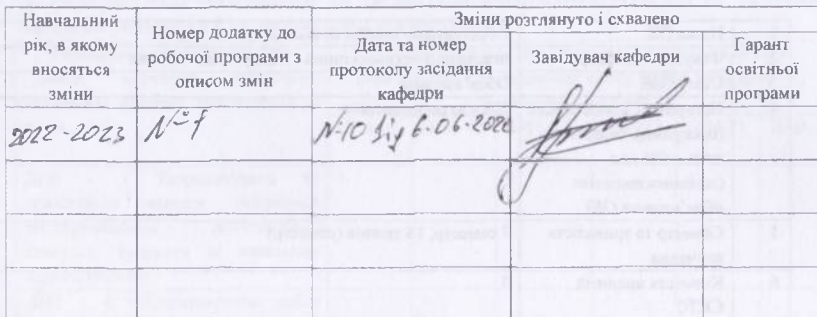 Навчальний
рік, в якому
вносяться
зміни
Номер додатку до
робочої програми з
описом змін
Зміни розглянуто і схвалено
Дата та номер
протоколу засідання
кафедри
Завідувач кафедри
Гарант
освітньої
програми
2022-2023
№1
№10 від 6.06.202